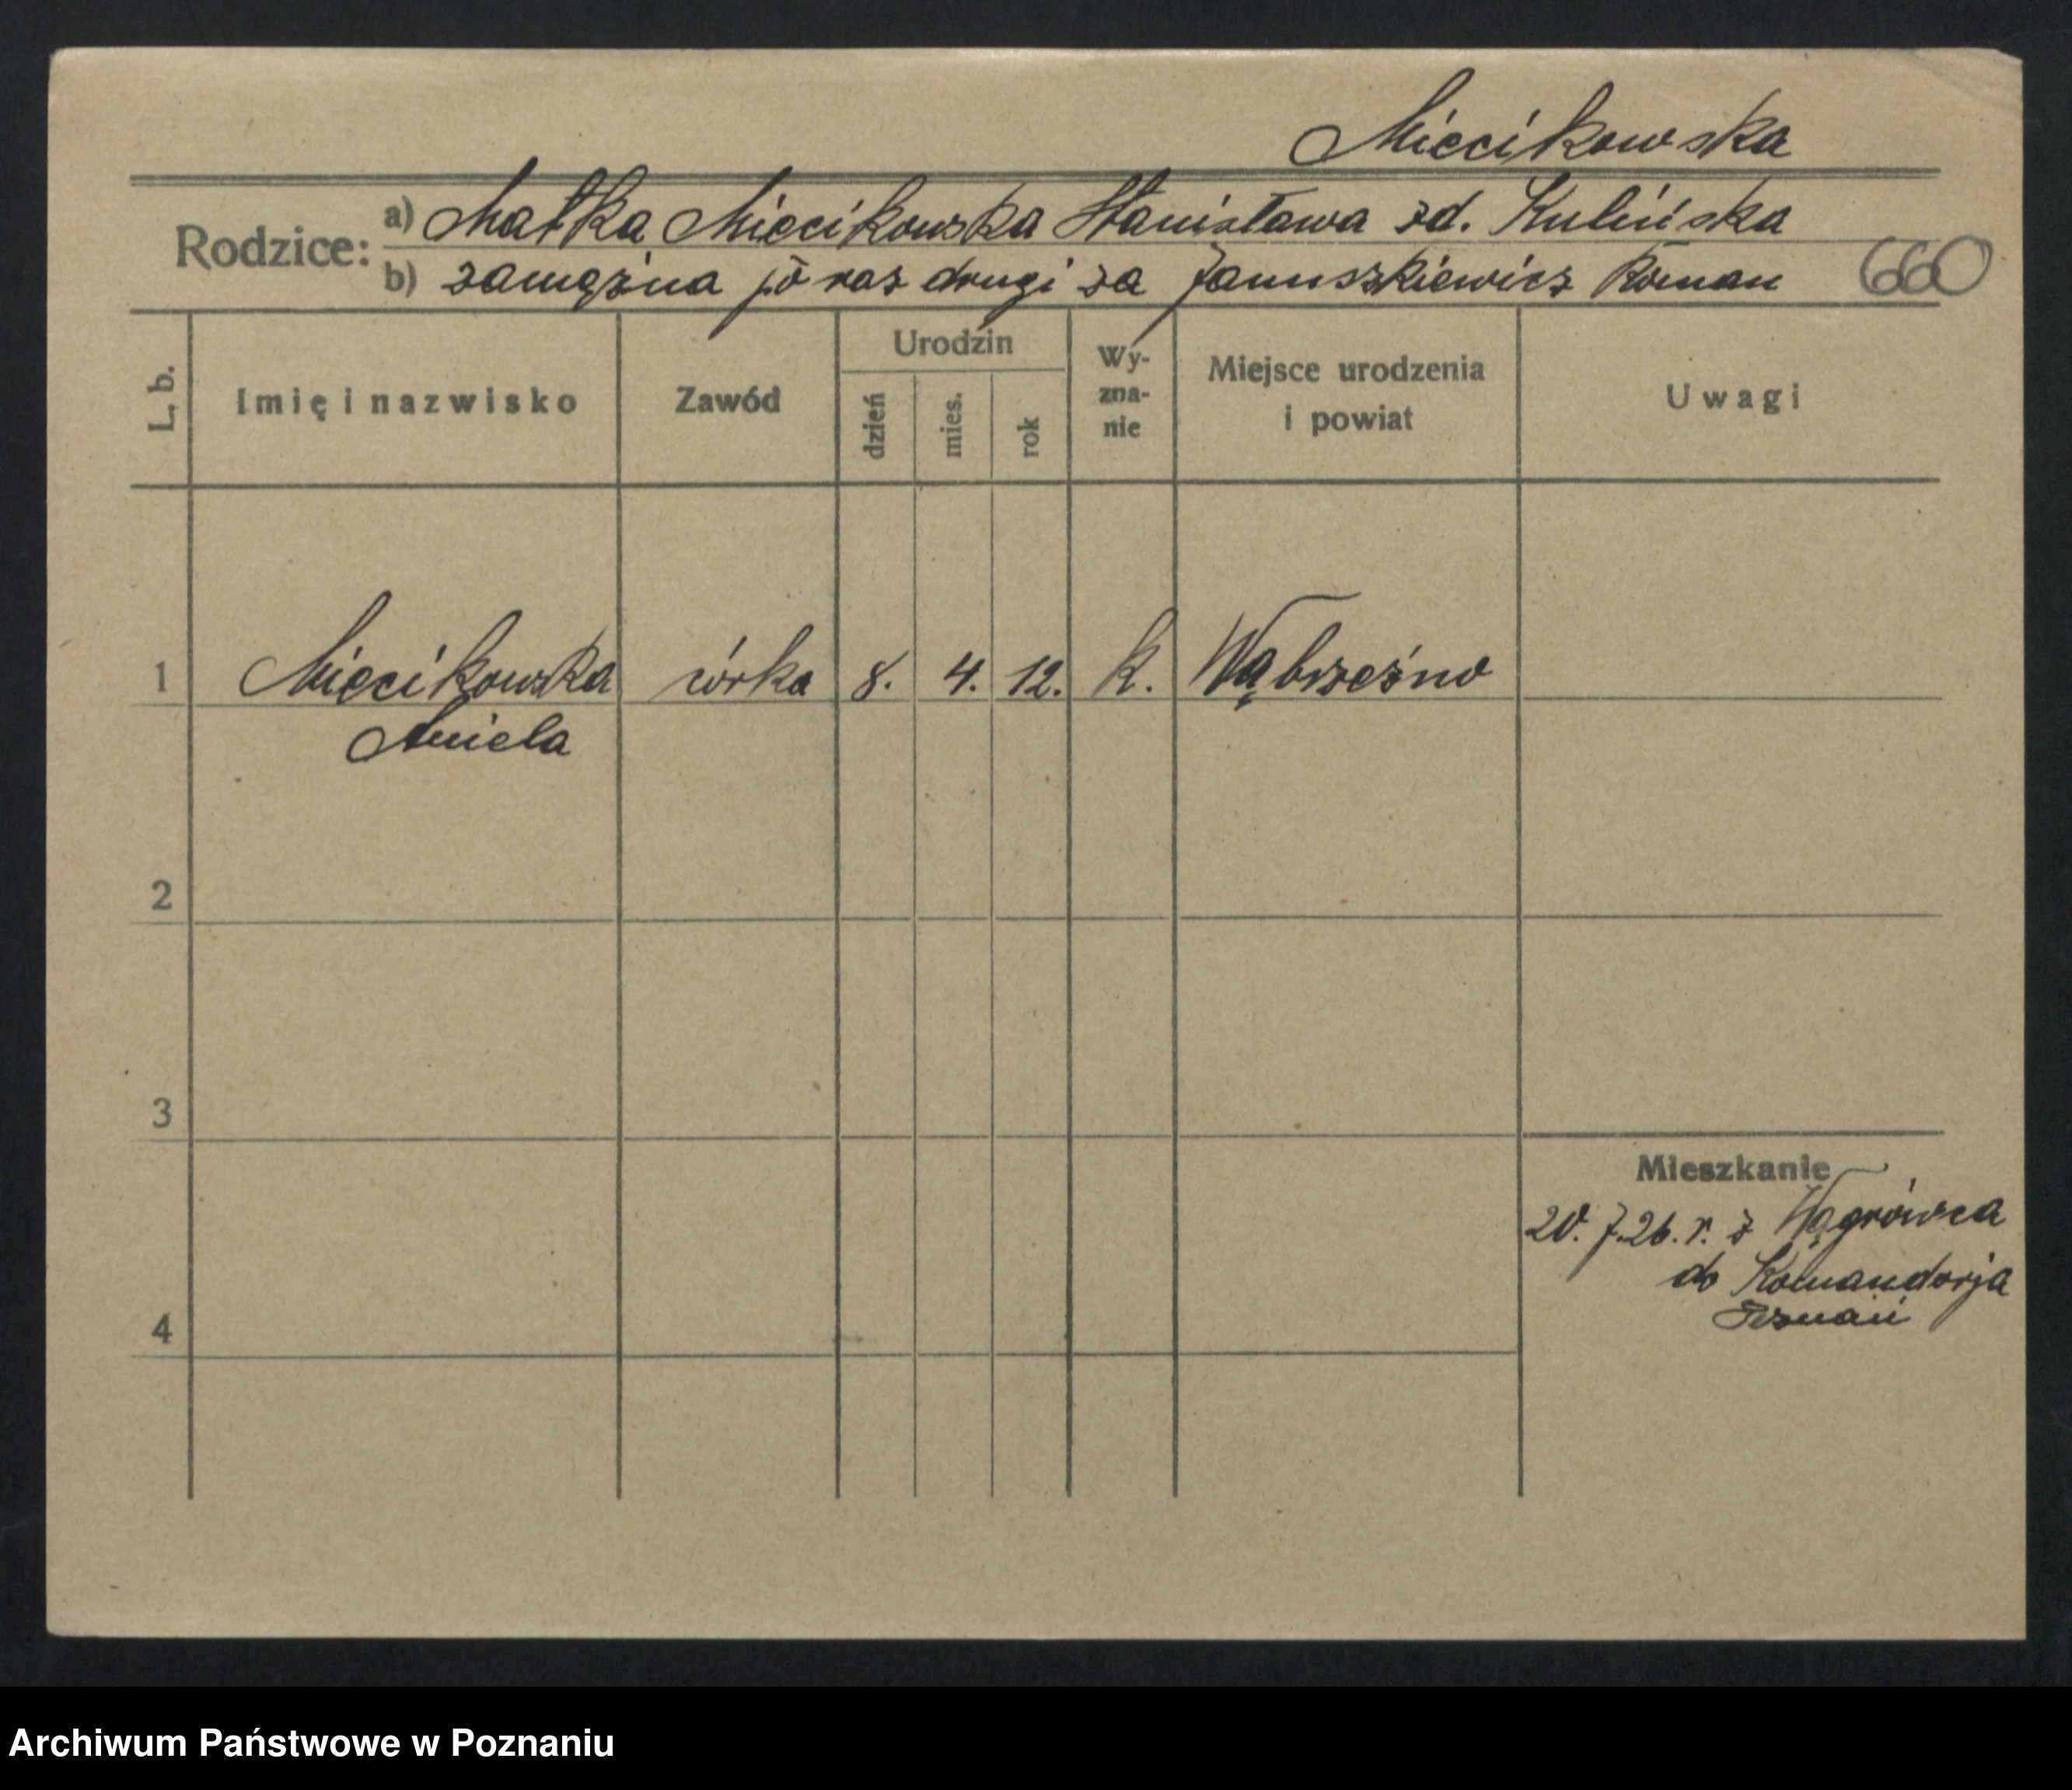 Miecikowska
Rodzice: a) Matka Miecikowska Stanisława zd. Kulińska
b) zamężna po raz drugi za Januszkiewicz Roman 660
L. b. Imię i nazwisko Zawód Urodzin dzień mies. rok Wy-zna-nie Miejsce urodzenia i powiat Uwagi
1 Miecikowska córka 8. 4. 12. K. Wąbrzeźno
Aniela
2
3
Mieszkanie
20. 7. 26. r. z Wągrówca
do Komandorja
Poznań
4
Archiwum Państwowe w Poznaniu